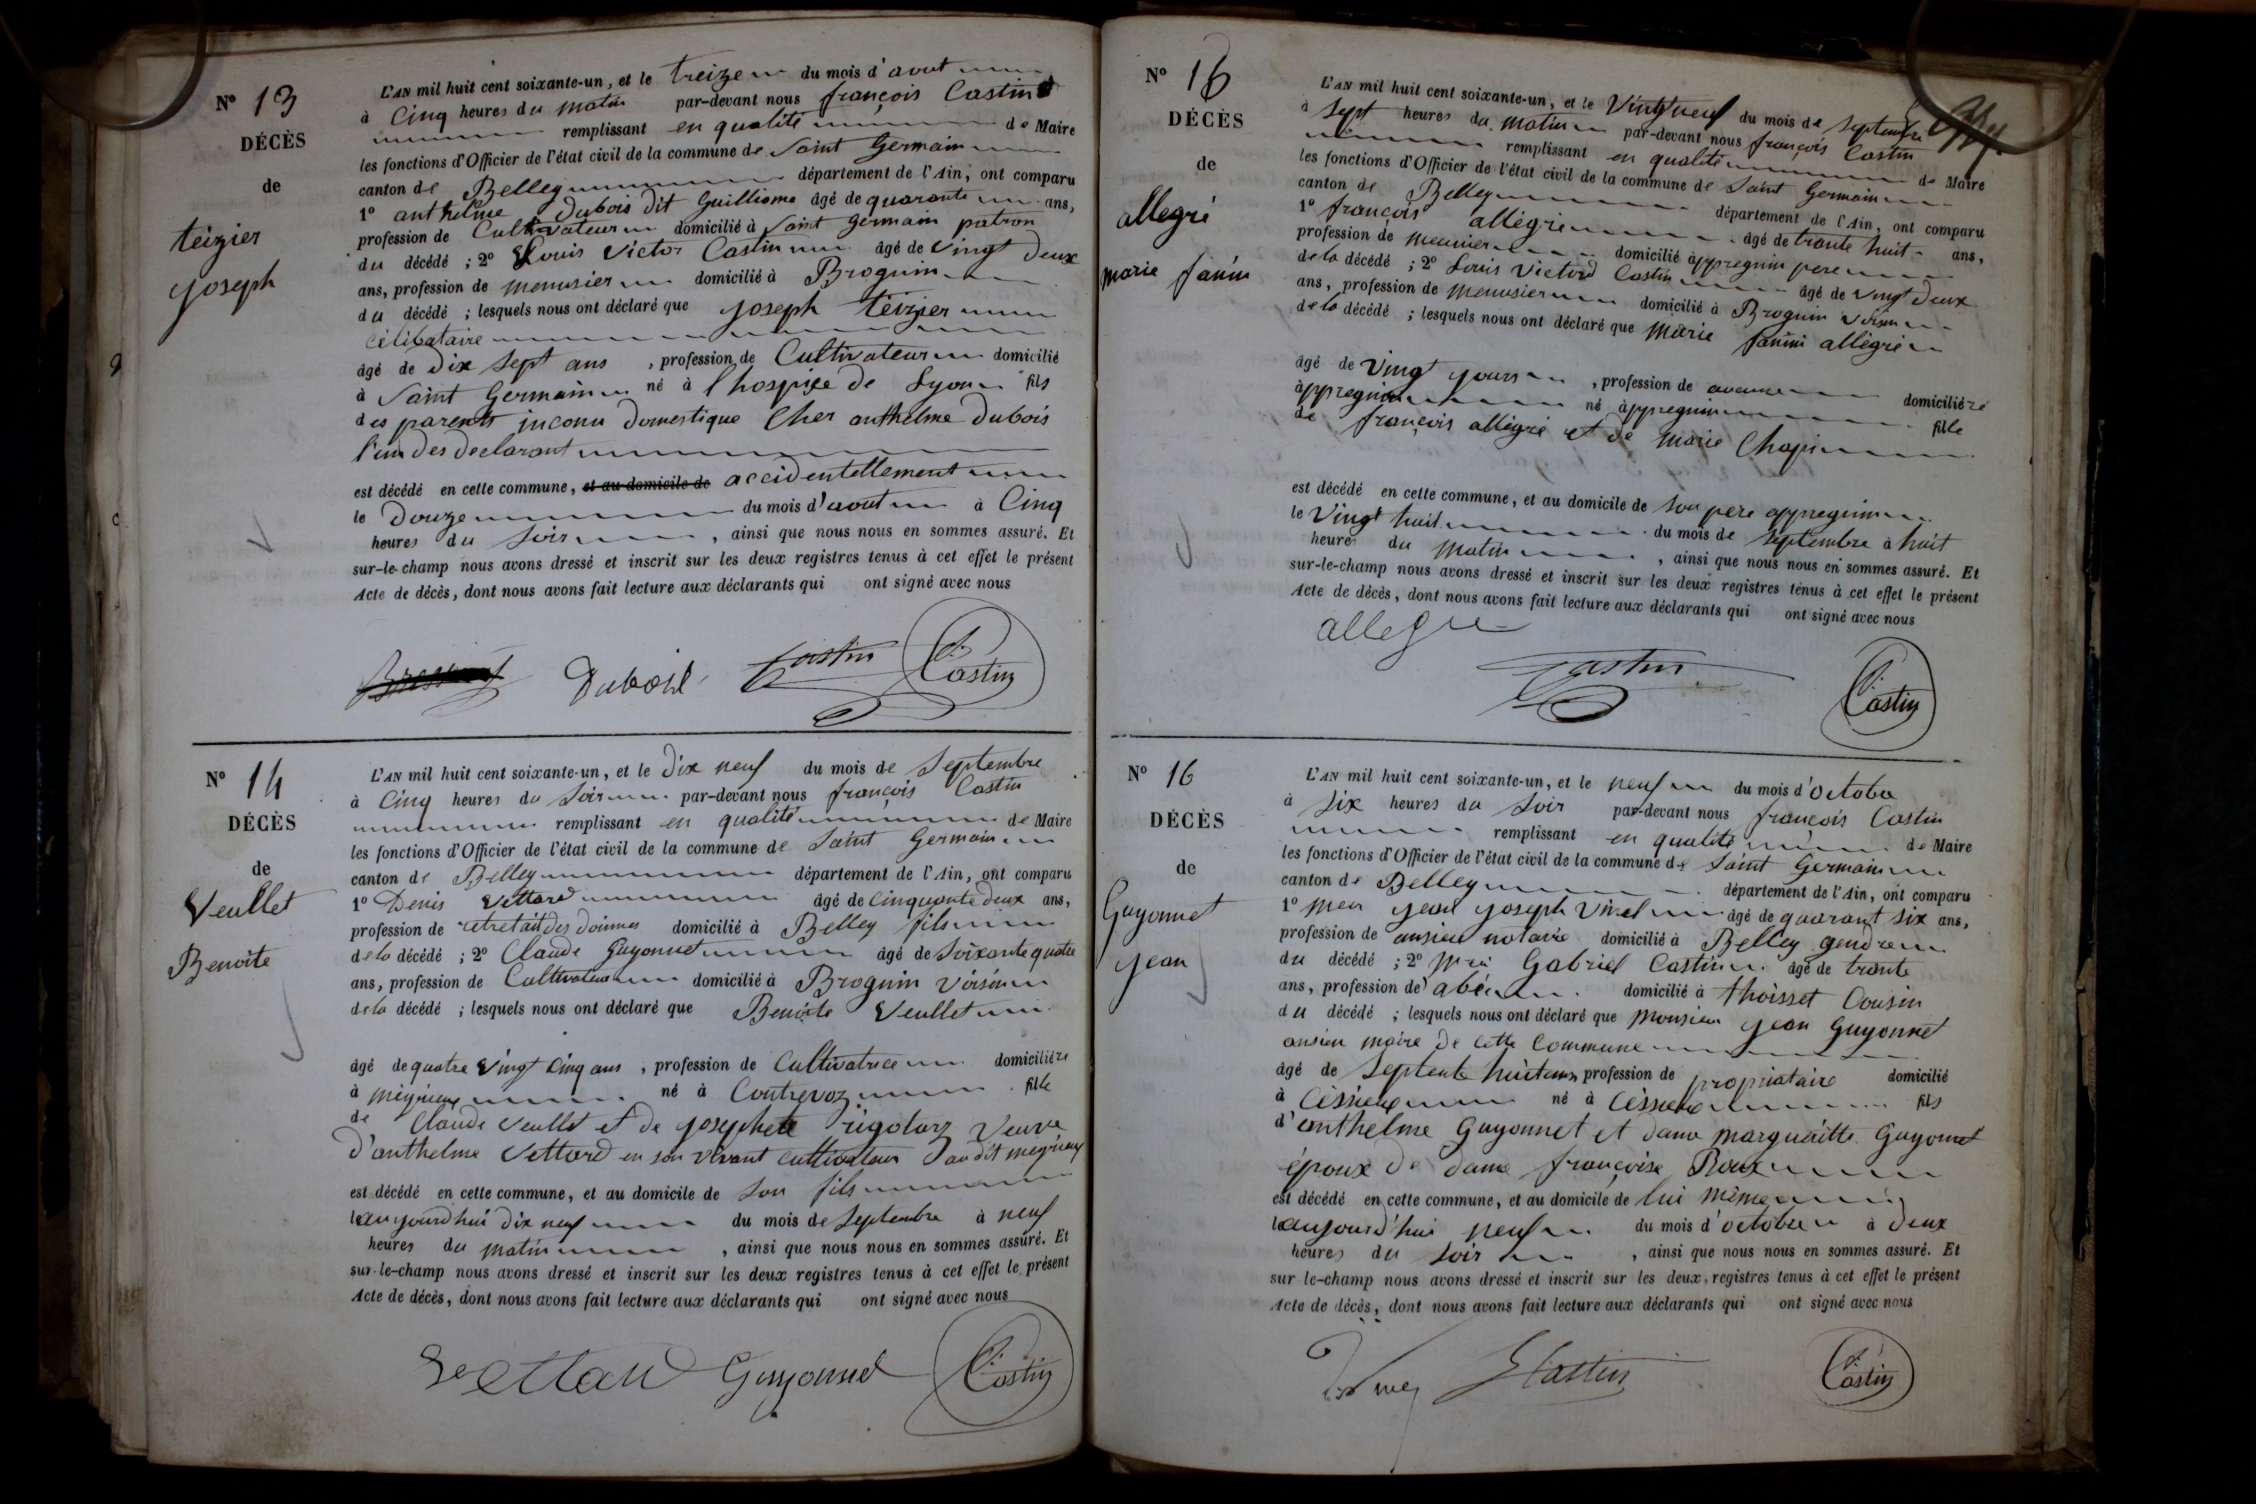 N° 13
DÉCÈS
de
teizier
joseph
L'AN mil huit cent soixante-un, et le treize du mois d'aout
à Cinq heures du matin par-devant nous françois Castin
remplissant en qualité de Maire
les fonctions d'Officier de l'état civil de la commune de Saint Germain
canton de Belley département de l'Ain, ont comparu
1° anthelme Dubois dit Guilliome âgé de quarante ans,
profession de Cultivateur domicilié à Saint Germain patron
du décédé ; 2° Louis Victor Castin âgé de vingt deux
ans, profession de menusier domicilié à Brognin
du décédé ; lesquels nous ont déclaré que joseph teizier
célibataire
âgé de dix sept ans , profession de Cultivateur domicilié
à Saint Germain né à l'hospice de Lyon fils
des parents inconu domestique Cher anthelme Dubois
l'un des declarant
est décédé en cette commune, et au domicile de accidentellement
le Douze du mois d'aout à Cinq
heures du Soir , ainsi que nous nous en sommes assuré. Et
sur-le-champ nous avons dressé et inscrit sur les deux registres tenus à cet effet le présent
Acte de décès, dont nous avons fait lecture aux déclarants qui ont signé avec nous
Dubois Castin Castin
N° 14
DÉCÈS
de
Veullet
Benoite
L'AN mil huit cent soixante-un, et le dix neuf du mois de Septembre
à Cinq heures du Soir par-devant nous françois Castin
remplissant en qualité de Maire
les fonctions d'Officier de l'état civil de la commune de Saint Germain
canton de Belley département de l'Ain, ont comparu
1° Denis Vettard âgé de Cinquante deux ans,
profession de retretait des doinnes domicilié à Belley fils
de la décédé ; 2° Claude Guyonnet âgé de Soixante quatre
ans, profession de Cultivateur domicilié à Brognin Voisin
de la décédé ; lesquels nous ont déclaré que Benoite Veullet
âgé de quatre Vingt Cinq ans , profession de Cultivatrice domiciliére
à mégrieux né à Contrevoz fille
de Claude Veullet et de josephete rigotary Veuve
d'anthelme Vettard en son vivant cultivateur audit mégrieux
est décédé en cette commune, et au domicile de son fils
le aujourd'hui dix neuf du mois de Septembre à neuf
heures du matin , ainsi que nous nous en sommes assuré. Et
sur-le-champ nous avons dressé et inscrit sur les deux registres tenus à cet effet le présent
Acte de décès, dont nous avons fait lecture aux déclarants qui ont signé avec nous
Vettard Guyonnet Castin
N° 15
DÉCÈS
de
allegré
marie fanni
L'AN mil huit cent soixante-un, et le Vingt neuf du mois de Septembre
à Sept heures du matin par-devant nous françois Castin
remplissant en qualité de Maire
les fonctions d'Officier de l'état civil de la commune de Saint Germain
canton de Belley département de l'Ain, ont comparu
1° françois allégré âgé de trante huit ans,
profession de meunier domicilié à appregnin pere
de la décédé ; 2° Louis Victord Castin âgé de vingt deux
ans, profession de menusier domicilié à Brognin voisin
de la décédé ; lesquels nous ont déclaré que marie fanini allégré
âgé de Vingt jours , profession de aucune domiciliére
à appregnin né à appregnin fille
de françois allégré et de marie Chapi
est décédé en cette commune, et au domicile de son pere appregnin
le Vingt huit du mois de septembre à huit
heures du matin , ainsi que nous nous en sommes assuré. Et
sur-le-champ nous avons dressé et inscrit sur les deux registres tenus à cet effet le présent
Acte de décès, dont nous avons fait lecture aux déclarants qui ont signé avec nous
allegre
Castin Castin
N° 16
DÉCÈS
de
Guyonnet
jean
L'AN mil huit cent soixante-un, et le neuf du mois d'octobre
à Six heures du Soir par-devant nous françois Castin
remplissant en qualité de Maire
les fonctions d'Officier de l'état civil de la commune de Saint Germain
canton de Belley département de l'Ain, ont comparu
1° jean joseph Vinet âgé de quarant six ans,
profession de ansien notaire domicilié à Belley gendre
du décédé ; 2° Gabriel Castin âgé de trante
ans, profession de abée domicilié à thoisset Cousin
du décédé ; lesquels nous ont déclaré que monsieur jean Guyonnet
ansien maire de cette Commune
âgé de Septente huit ans profession de propriataire domicilié
à Céssieux né à Céssieux fils
d'anthelme Guyonnet et dame marguéritte Guyonnet
époux de dame françoise Roux
est décédé en cette commune, et au domicile de lui même
le aujourd'hui neuf du mois d'octobre à deux
heures du soir , ainsi que nous nous en sommes assuré. Et
sur-le-champ nous avons dressé et inscrit sur les deux registres tenus à cet effet le présent
Acte de décès, dont nous avons fait lecture aux déclarants qui ont signé avec nous
Castin Castin